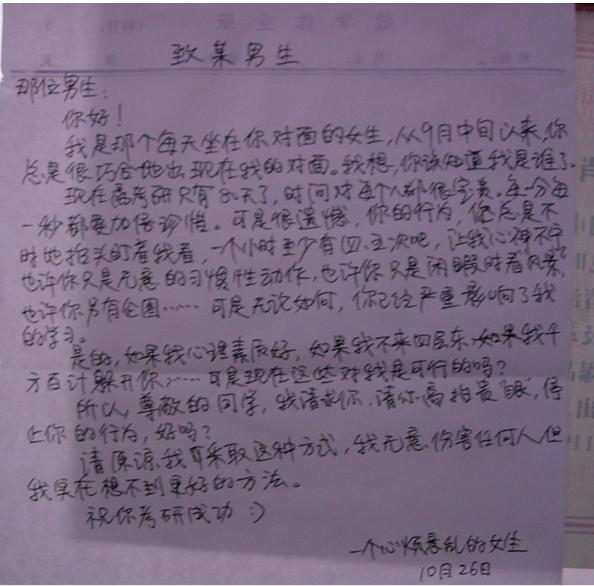 致某男生
那位男生：
你好！
我是那个每天坐在你对面的女生，从9月中间以来，你
总是很巧合地出现在我的对面。我想，你该知道我是谁了。
现在离考研只有80天了，时间对每个人都很宝贵。每一分每
一秒都要加倍珍惜。可是很遗憾，你的行为，您总是不
时地抬头盯着我看，一个小时至少有四、五次吧，让我心神不宁
也许你只是无意的习惯性动作，也许你只是闲暇时看"风景"，
也许你另有企图……可是无论如何，你已经严重影响了我
的学习。
是的，如果我心理素质好，如果我不来四层东，如果我千
方百计躲开你，……可是现在这些对我是可行的吗？
所以，尊敬的同学，我请求你，请你高抬贵"眼"，停
止你的行为，好吗？
请原谅我采取这种方式，我无意伤害任何人，但
我实在想不到更好的方法。
祝你考研成功：）
一个心烦意乱的女生
10月26日